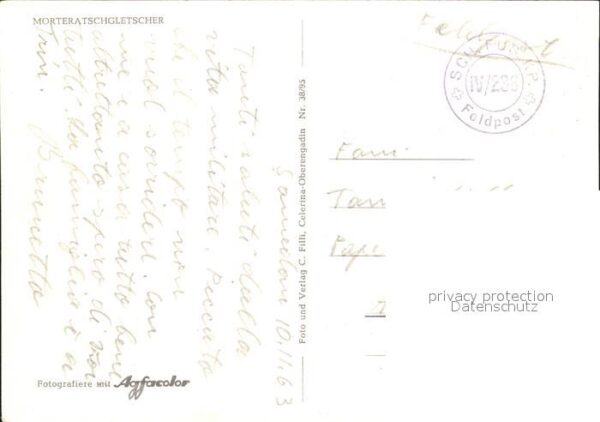 MORTERATSCHGLETSCHER
Samedan 10.11.63
Tanti saluti dalla
vita militare. Peccato
che il tempo non
vuol sorridere con
me e a casa tutto bene
altrettanto spero di voi
tutti. La famiglia è a
Trun. Brunetta
Fotografiere mit Agfacolor
Foto und Verlag C. Filli, Celerina-Oberengadin Nr. 38/95
Feldpost
SCH. FUS. KP.
IV/236
Feldpost
Fam
Tam
Pape
privacy protection
Datenschutz